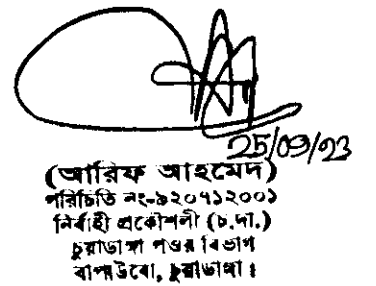 25/09/23
(আরিফ আহমেদ)
পরিচিতি নং-৯২০৭১২০০১
নির্বাহী প্রকৌশলী (চ.দা.)
চুয়াডাঙ্গা পওর বিভাগ
বাপাউবো, চুয়াডাঙ্গা।